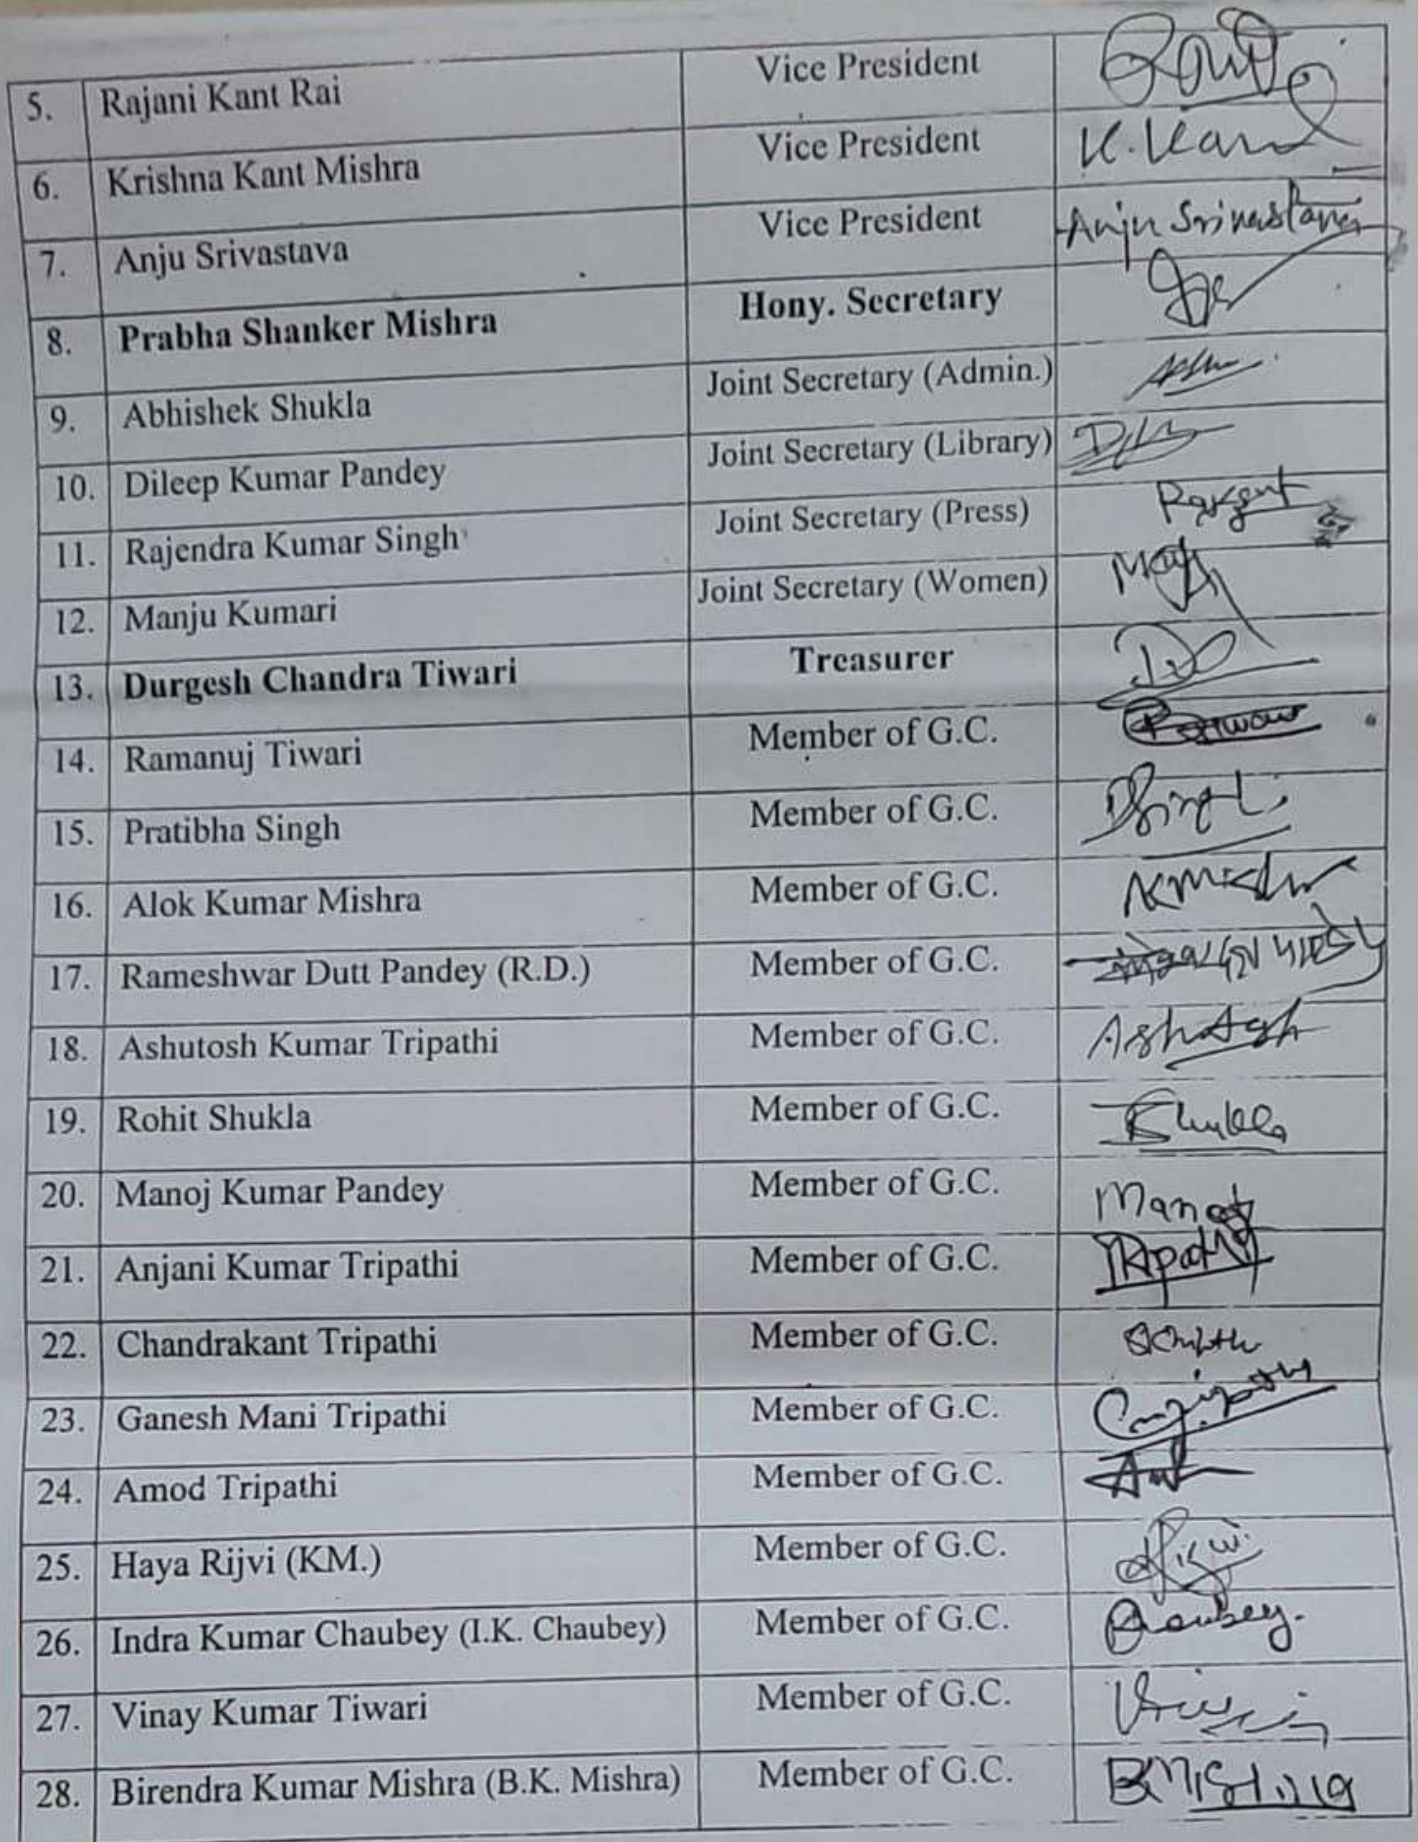 5. Rajani Kant Rai Vice President
6. Krishna Kant Mishra Vice President K. Kant
7. Anju Srivastava Vice President Anju Srivastava
8. Prabha Shanker Mishra Hony. Secretary
9. Abhishek Shukla Joint Secretary (Admin.)
10. Dileep Kumar Pandey Joint Secretary (Library)
11. Rajendra Kumar Singh Joint Secretary (Press)
12. Manju Kumari Joint Secretary (Women)
13. Durgesh Chandra Tiwari Treasurer
14. Ramanuj Tiwari Member of G.C.
15. Pratibha Singh Member of G.C.
16. Alok Kumar Mishra Member of G.C.
17. Rameshwar Dutt Pandey (R.D.) Member of G.C.
18. Ashutosh Kumar Tripathi Member of G.C.
19. Rohit Shukla Member of G.C. Shukla
20. Manoj Kumar Pandey Member of G.C. Manoj
21. Anjani Kumar Tripathi Member of G.C.
22. Chandrakant Tripathi Member of G.C.
23. Ganesh Mani Tripathi Member of G.C.
24. Amod Tripathi Member of G.C.
25. Haya Rijvi (KM.) Member of G.C.
26. Indra Kumar Chaubey (I.K. Chaubey) Member of G.C.
27. Vinay Kumar Tiwari Member of G.C.
28. Birendra Kumar Mishra (B.K. Mishra) Member of G.C. BMishra